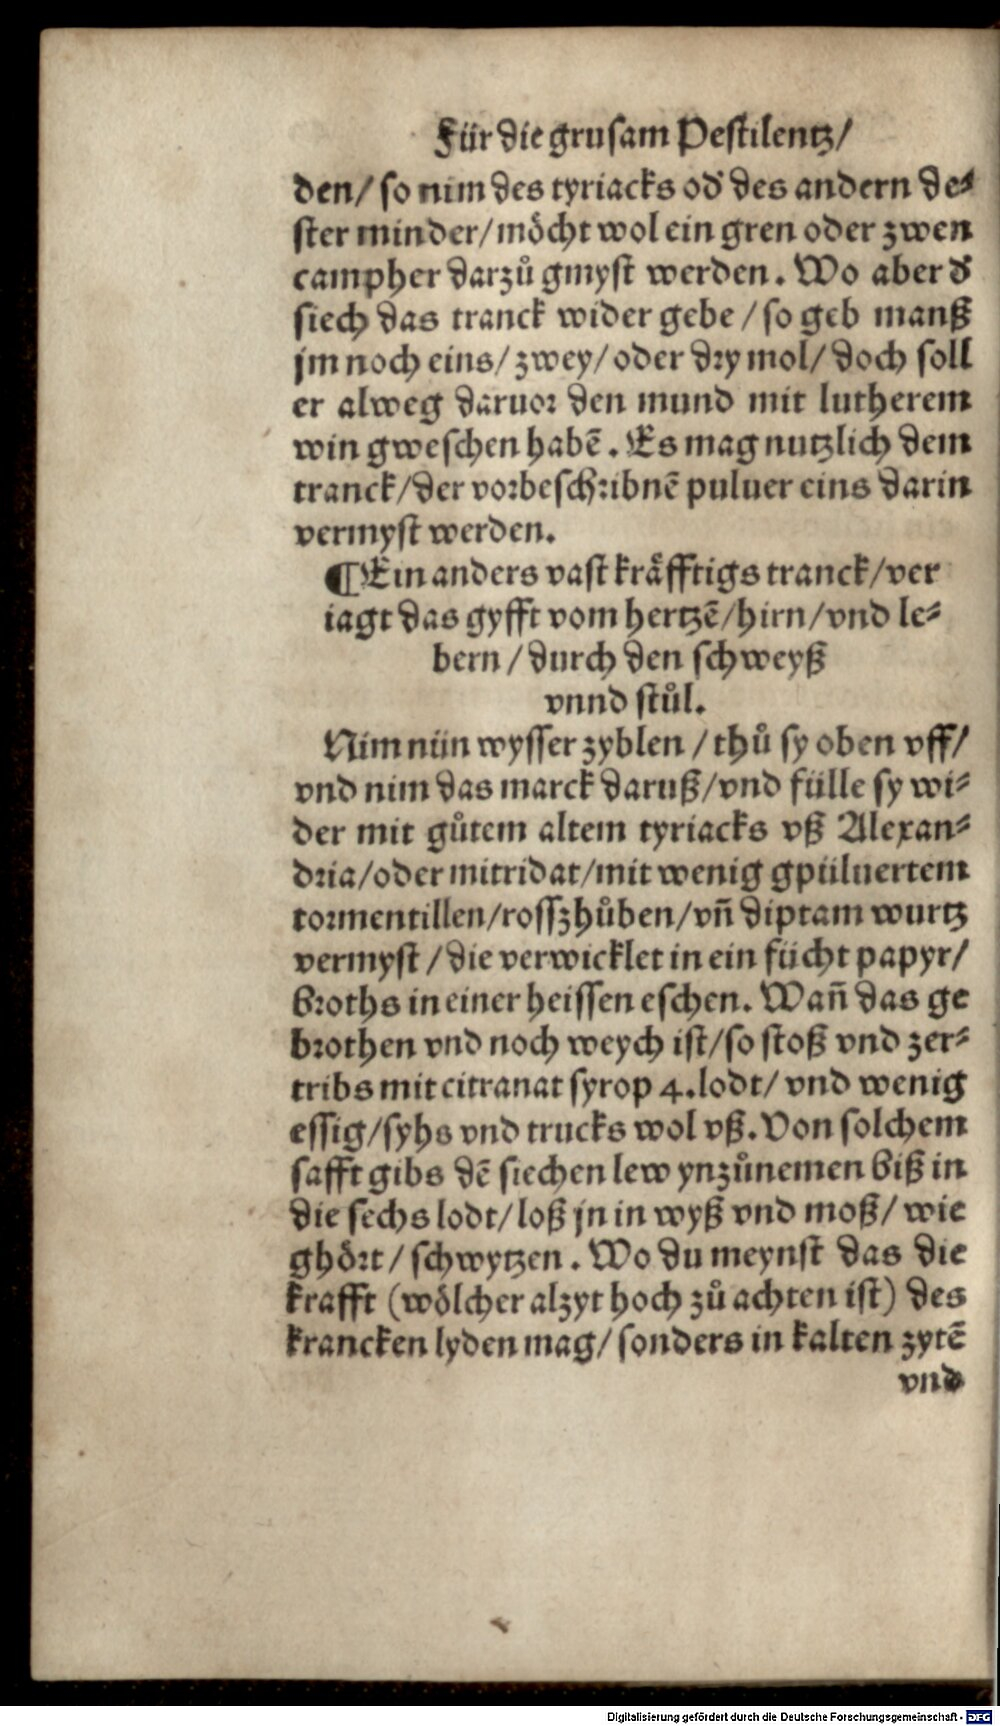 Für die grusam Pestilentz/
den/ so nim des tyriacks od' des andern de⸗
ster minder/möcht wol ein gren oder zwen
campher darzů gmyst werden. Wo aber d'
siech das tranck wider gebe / so geb manß
jm noch eins/ zwey/ oder dry mol/ doch soll
er alweg daruor den mund mit lutherem
win gweschen habē. Es mag nutzlich dem
tranck/der vorbeschribnē puluer eins darin
vermyst werden.
¶Ein anders vast kräfftigs tranck/ver
iagt das gyfft vom hertzē/hirn/vnd le⸗
bern / durch den schweyß
vnnd stůl.
Nim nün wysser zyblen / thů sy oben vff/
vnd nim das marck daruß/vnd fülle sy wi⸗
der mit gůtem altem tyriacks vß Alexan⸗
dria/oder mitridat/mit wenig gpüluertem
tormentillen/rosszhůben/vñ diptam wurtz
vermyst / die verwicklet in ein fücht papyr/
broths in einer heissen eschen. Wañ das ge
brothen vnd noch weych ist/so stoß vnd zer⸗
tribs mit citranat syrop 4.lodt/ vnd wenig
essig/syhs vnd trucks wol vß. Von solchem
safft gibs dē siechen lew ynzůnemen biß in
die sechs lodt/ loß jn in wyß vnd moß/ wie
ghört / schwytzen. Wo du meynst das die
krafft (wölcher alzyt hoch zů achten ist) des
krancken lyden mag/ sonders in kalten zytē
vnd
Digitalisierung gefördert durch die Deutsche Forschungsgemeinschaft - DFG